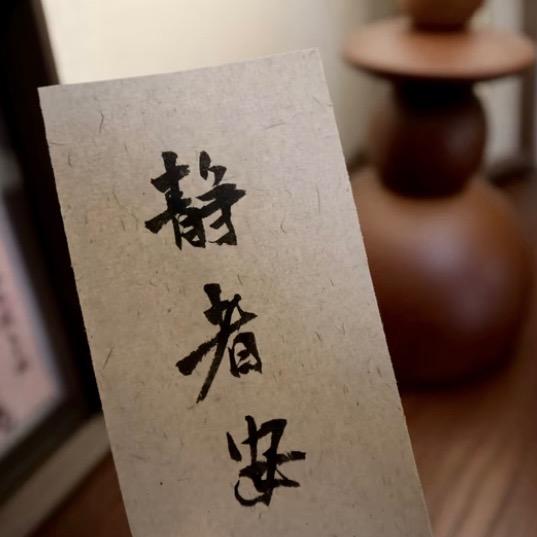 静者安